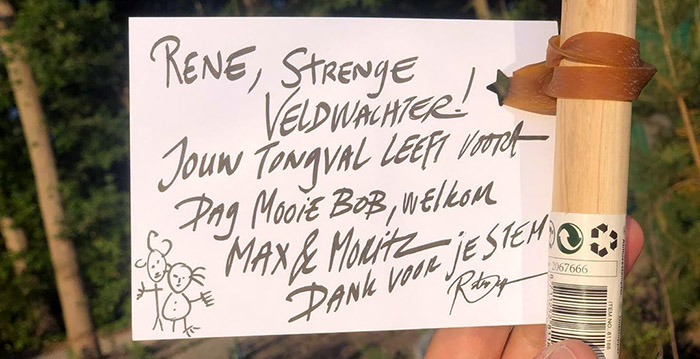 RENE, STRENGE
VELDWACHTER!
JOUW TONGVAL LEEFT VOORT
DAG MOOIE BOB, WELKOM
MAX & MORITZ
DANK VOOR JE STEM
2067666
ITEM NO.